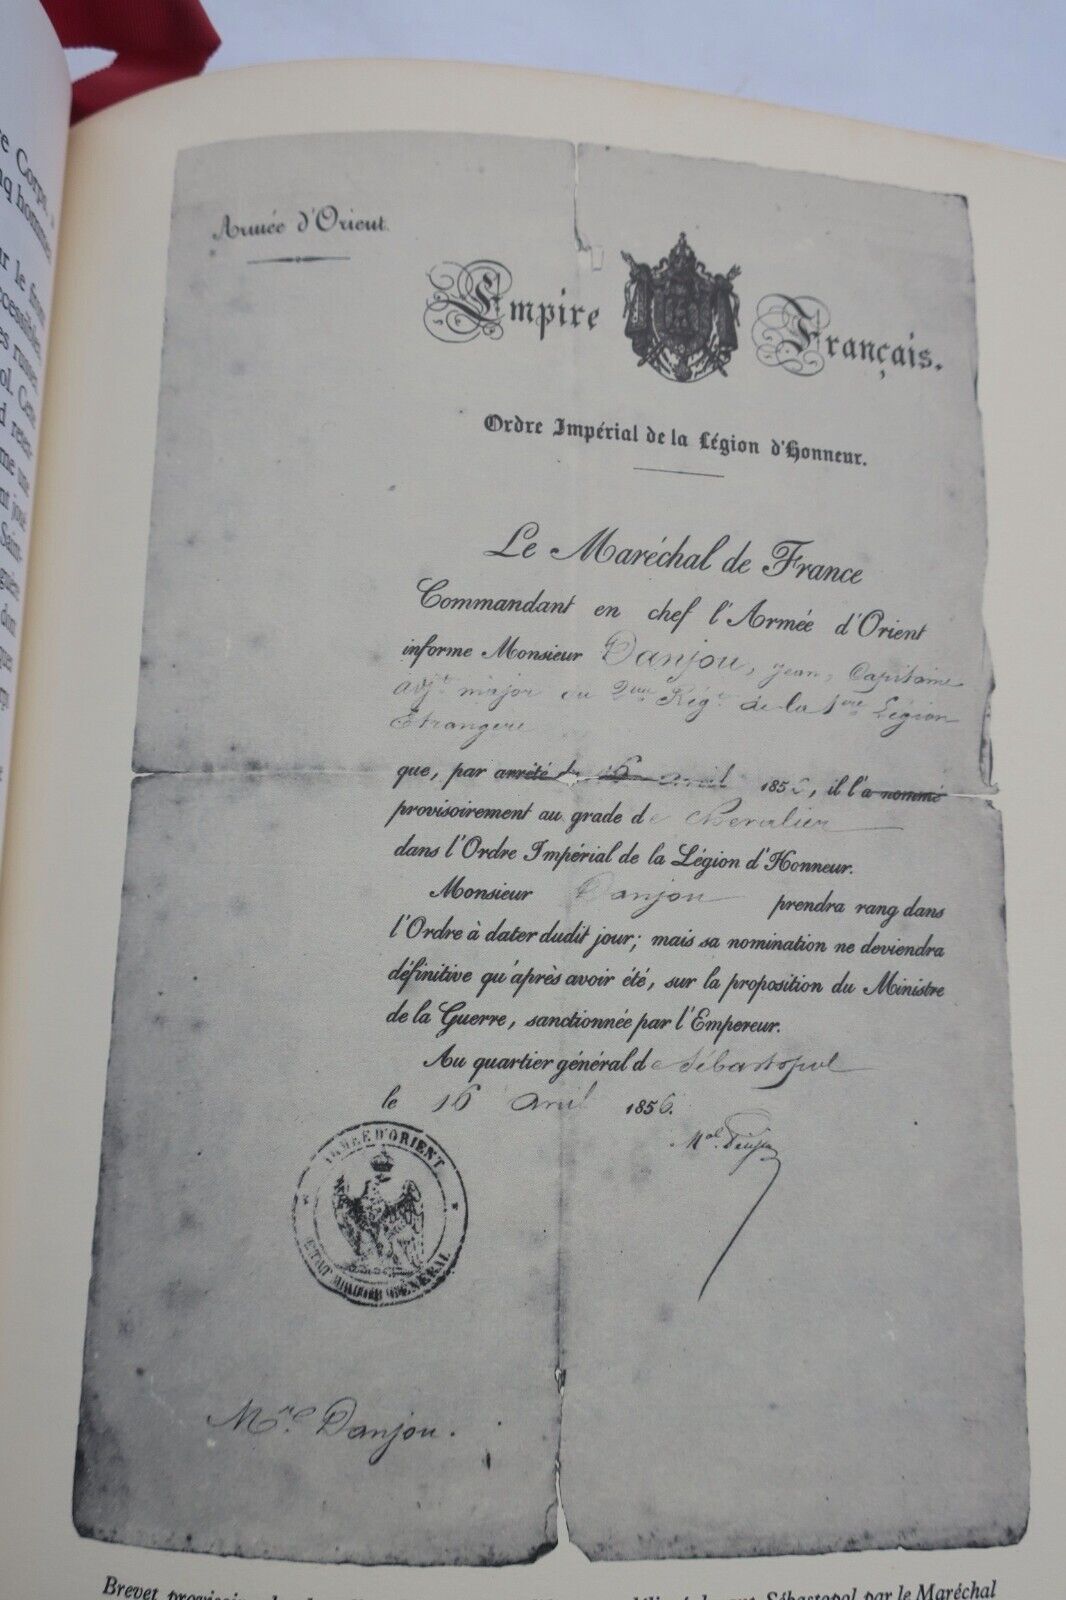 e Corps, »
nq hommes
ur le front
ccessibles,
es russes
ol. Cette
d reten-
me une
nt joué
Saint-
guerre
dont
ques
Armée d'Orient.
Empire Français.
Ordre Impérial de la Légion d'Honneur.
Le Maréchal de France
Commandant en chef l'Armée d'Orient
informe Monsieur Danjou, Jean, Capitaine
adjt major au 2me Régt de la 1ère Légion
Etrangère
que, par arrêté du 16 avril 1856, il l'a nommé
provisoirement au grade de Chevalier
dans l'Ordre Impérial de la Légion d'Honneur.
Monsieur Danjou prendra rang dans
l'Ordre à dater dudit jour; mais sa nomination ne deviendra
définitive qu'après avoir été, sur la proposition du Ministre
de la Guerre, sanctionnée par l'Empereur.
Au quartier général de Sébastopol
le 16 avril 1856.
Mal Pélissier
ARMÉE D'ORIENT
ETAT MAJOR GÉNÉRAL
Mr Danjou.
Brevet Sébastopol par le Maréchal